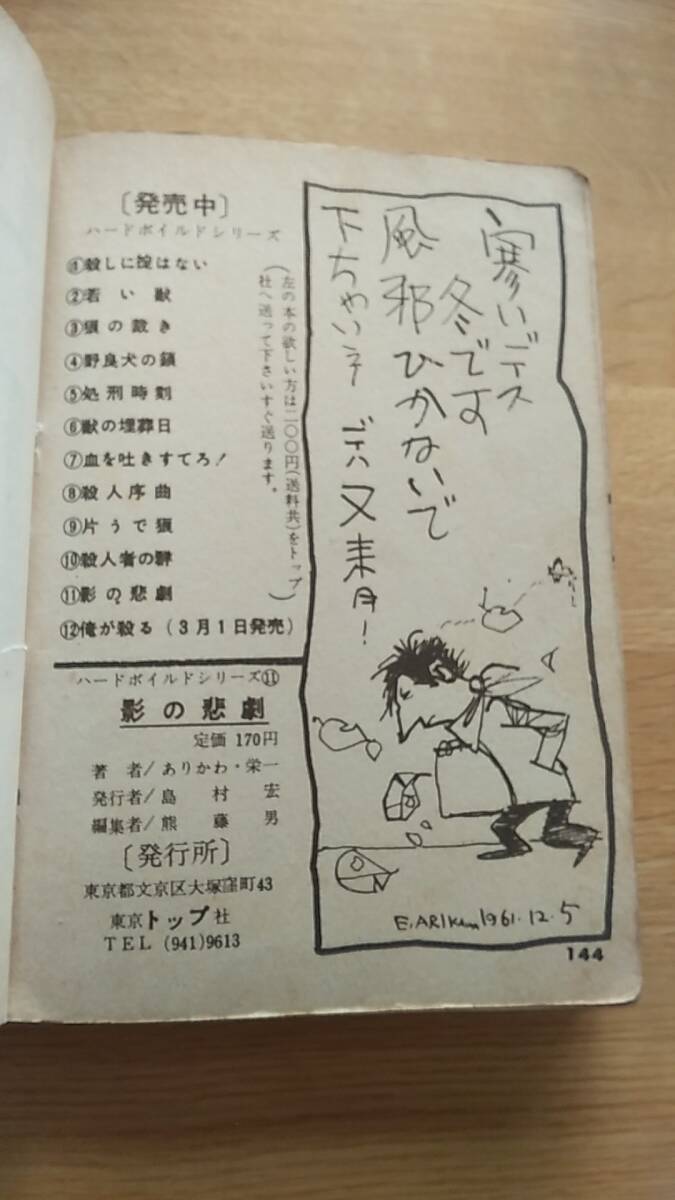 寒いデス
冬です
風邪ひかないで
下ちゃいネ デハ又来月!
E.ARIKAWA 1961.12.5
144
〔発売中〕
ハードボイルドシリーズ
①殺しに掟はない
②若い獣
③狼の裁き
④野良犬の鎖
⑤処刑時刻
⑥獣の埋葬日
⑦血を吐きすてろ!
⑧殺人序曲
⑨片うで狼
⑩殺人者の群
⑪影の悲劇
⑫俺が殺る(3月1日発売)
(左の本の欲しい方は二〇〇円(送料共)をトップ
社へ送って下さいすぐ送ります。)
ハードボイルドシリーズ⑪
影の悲劇
定価 170円
著者/ありかわ・栄一
発行者/島村宏
編集者/熊藤男
〔発行所〕
東京都文京区大塚窪町43
東京トップ社
TEL (941)9613